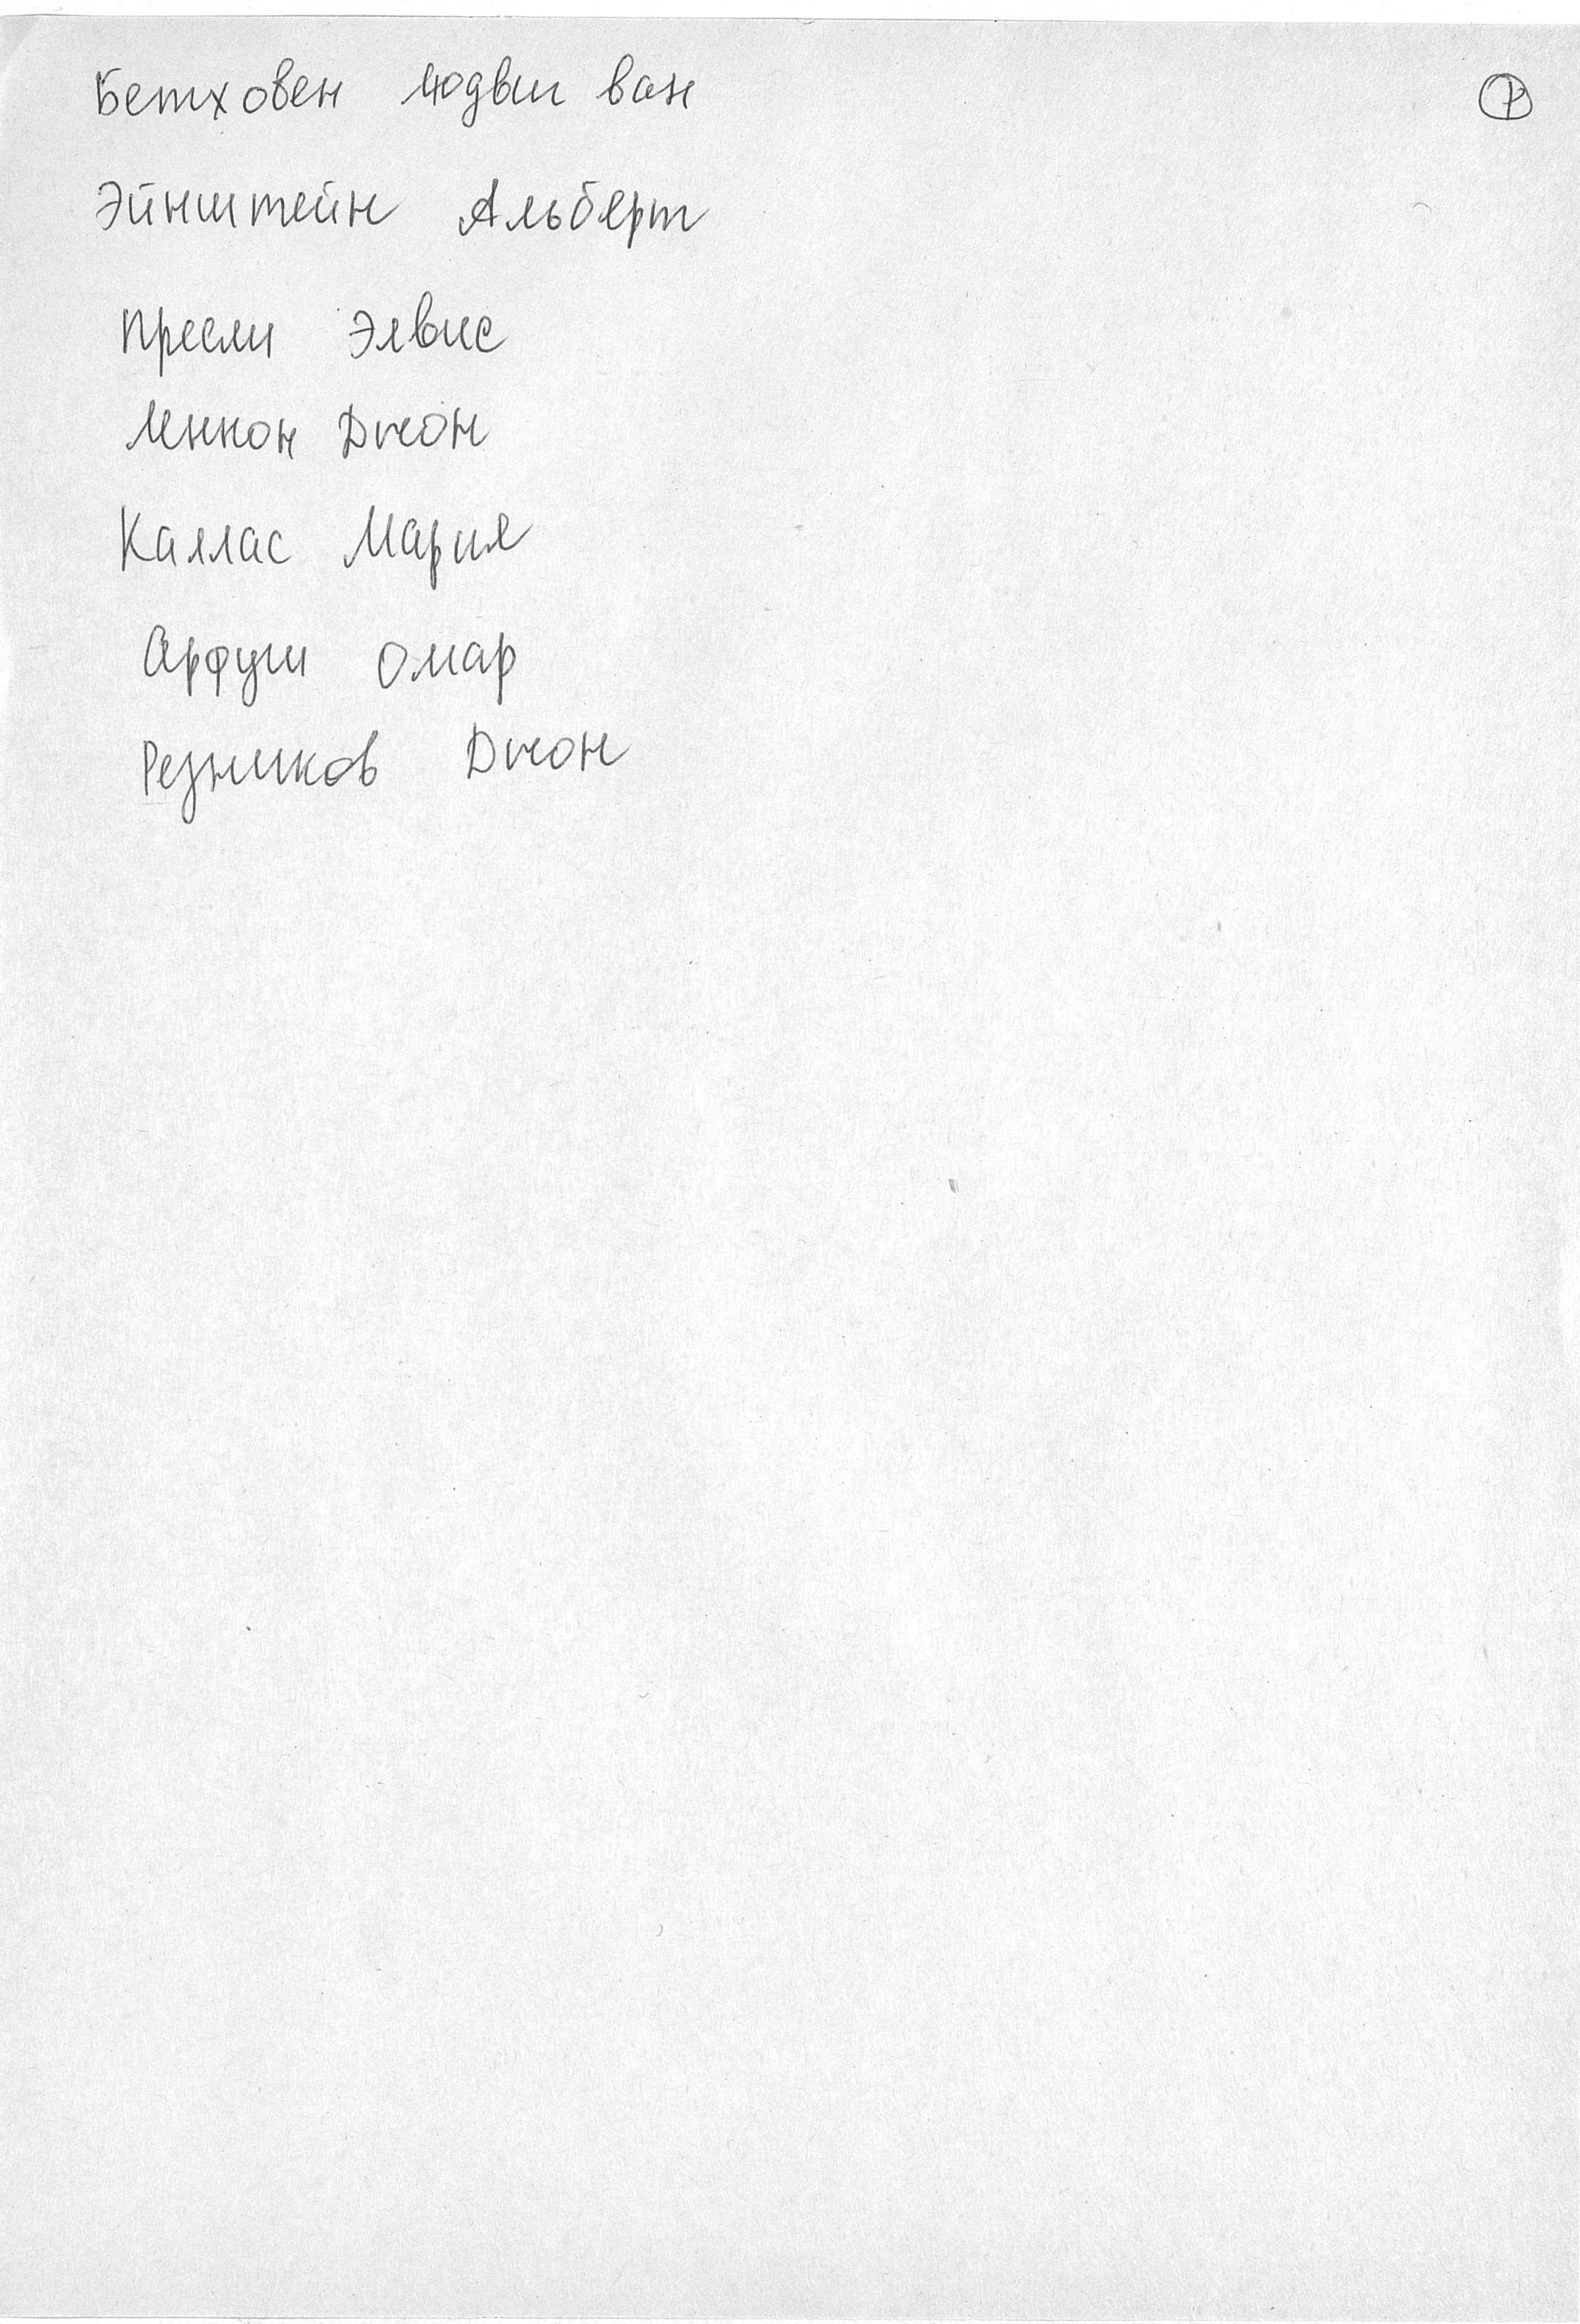 Бетховен Людвиг ван
Р
Эйнштейн Альберт
Пресли Элвис
Леннон Джон
Каллас Мария
Арфуш Омар
Резников Джон